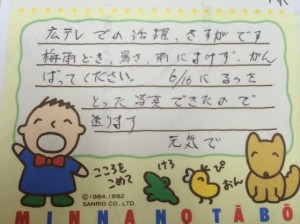 広テレでの活躍、さすがです
梅雨どき、暑さ、雨にまけず、がん
ばってください。 6/16に
とった写真できたので
送ります
元気で
こころを
こめて
けろ
ぴ
おん
©1984,1992
SANRIO CO., LTD.
MINNANOTĀBŌ